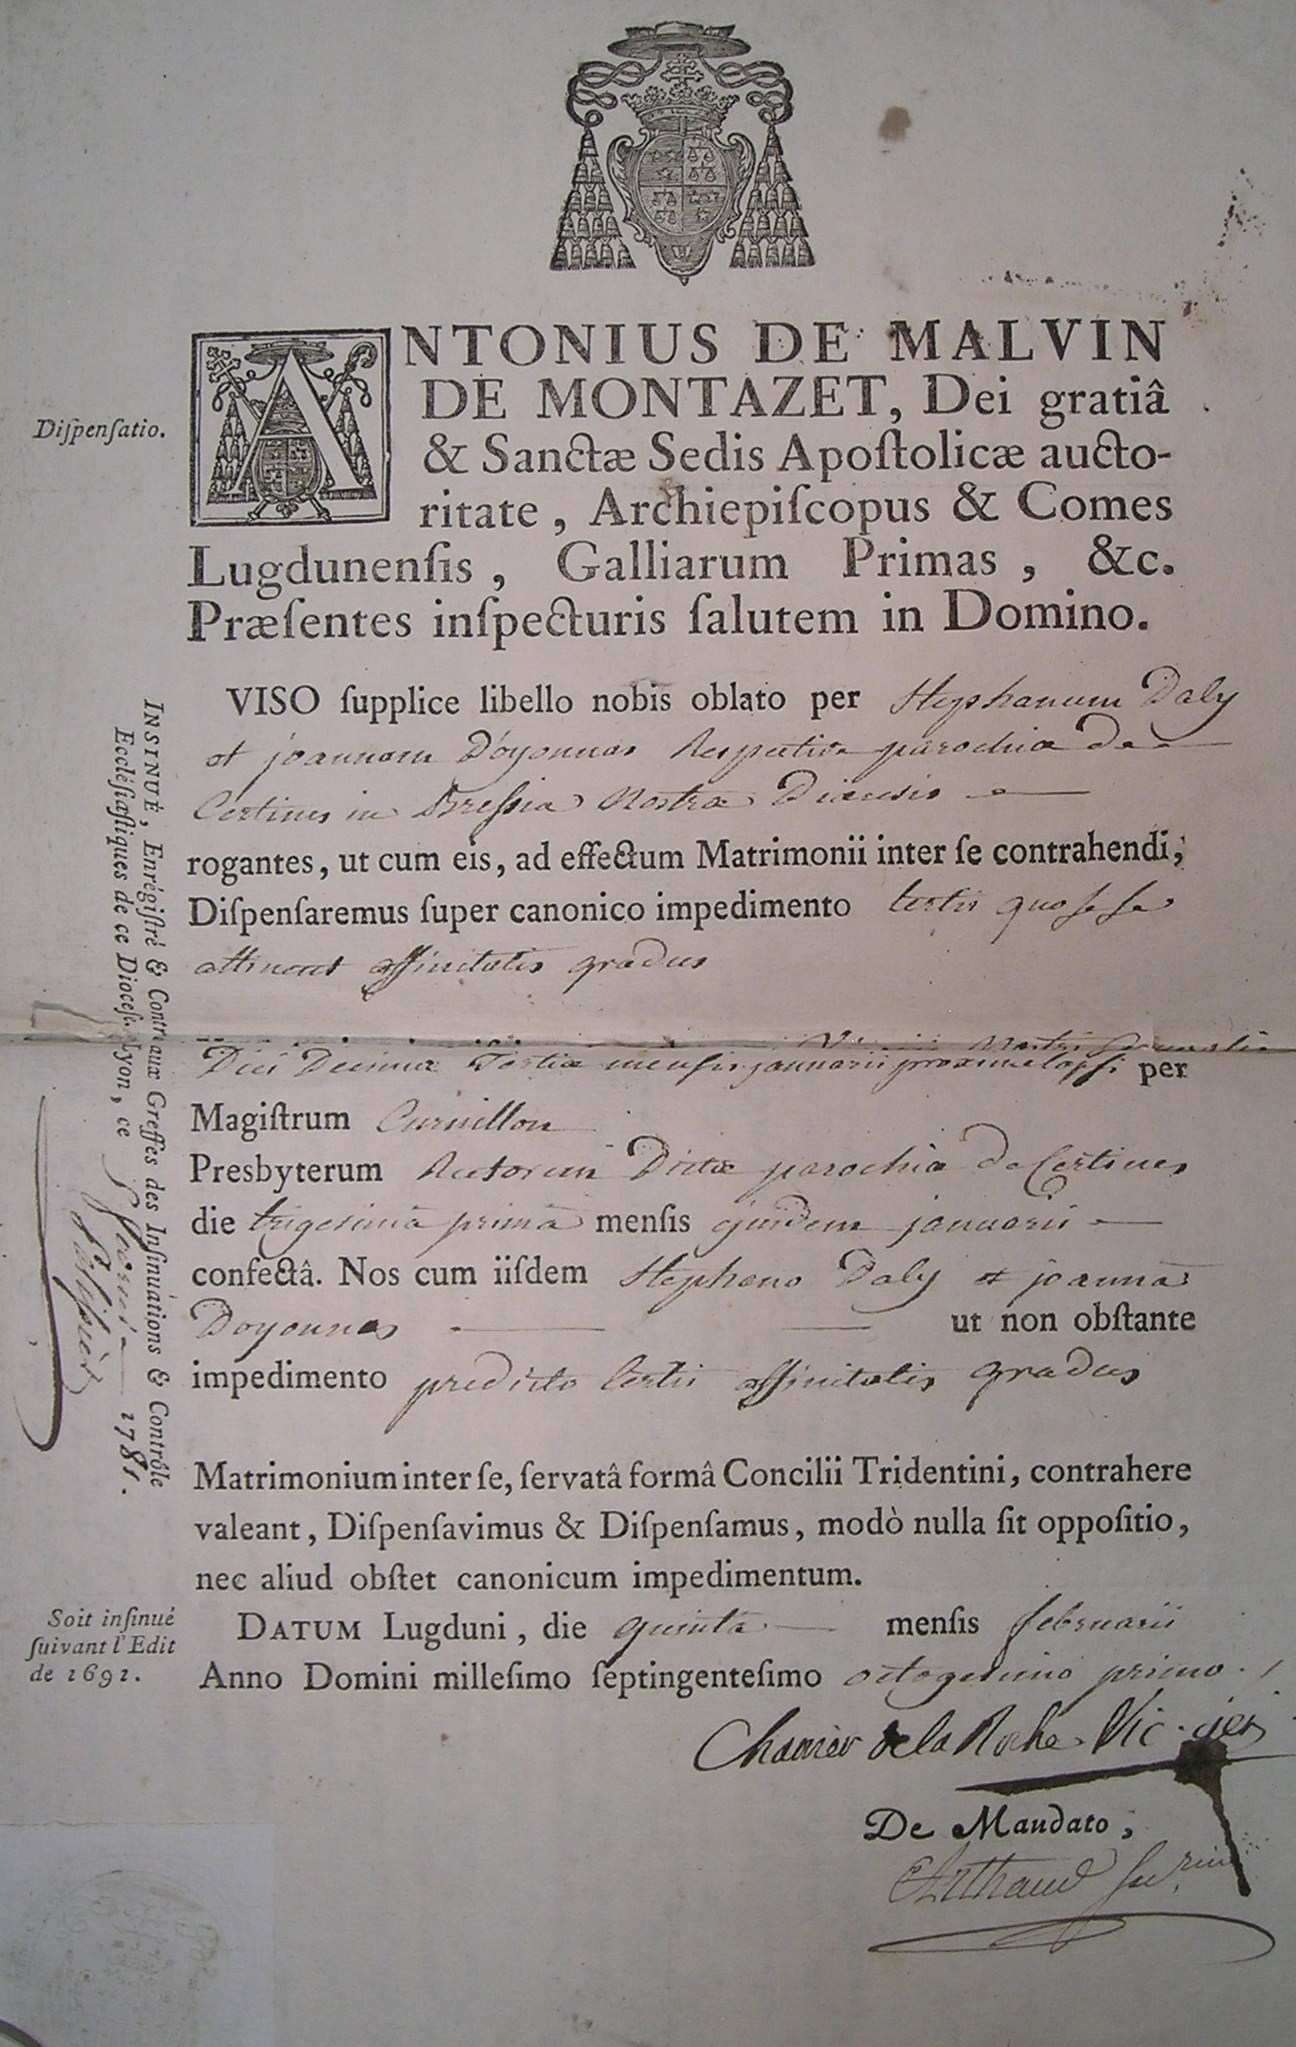 ANTONIUS DE MALVIN
DE MONTAZET, Dei gratiâ
& Sanctæ Sedis Apoſtolicæ aucto-
ritate, Archiepiſcopus & Comes
Lugdunenſis, Galliarum Primas, &c.
Præſentes inſpecturis ſalutem in Domino.
Diſpenſatio.
VISO ſupplice libello nobis oblato per Stephanum Daly
et joannam D'oyonnas Respective parochiæ de
Certines in Bressia Nostræ Diœcesis
rogantes, ut cum eis, ad effectum Matrimonii inter ſe contrahendi,
Diſpenſaremus ſuper canonico impedimento tertii quo sese
attinent affinitatis gradus
nostri
Diei Decimæ Tertiæ mensis januarii proxime lapsi per
Magiſtrum Curnillon
Presbyterum Rectorem Dictæ parochiæ de Certines
die trigesimâ primâ menſis ejusdem januarii
confectâ. Nos cum iiſdem Stephano Daly et joannâ
Doyonnas ut non obſtante
impedimento predicto tertii affinitatis gradus
Matrimonium inter ſe, ſervatâ formâ Concilii Tridentini, contrahere
valeant, Diſpenſavimus & Diſpenſamus, modò nulla ſit oppoſitio,
nec aliud obſtet canonicum impedimentum.
DATUM Lugduni, die quinta menſis februarii
Anno Domini milleſimo ſeptingenteſimo octogesimo primo.
Soit inſinué
ſuivant l'Edit
de 1691.
INSINUÉ, Enrégiſtré & Contr aux Greffes des Inſinuations & Contrôle
Eccléſiaſtiques de ce Dioceſe. Lyon, ce 1781.
De la Roche Vic. gen
De Mandato,